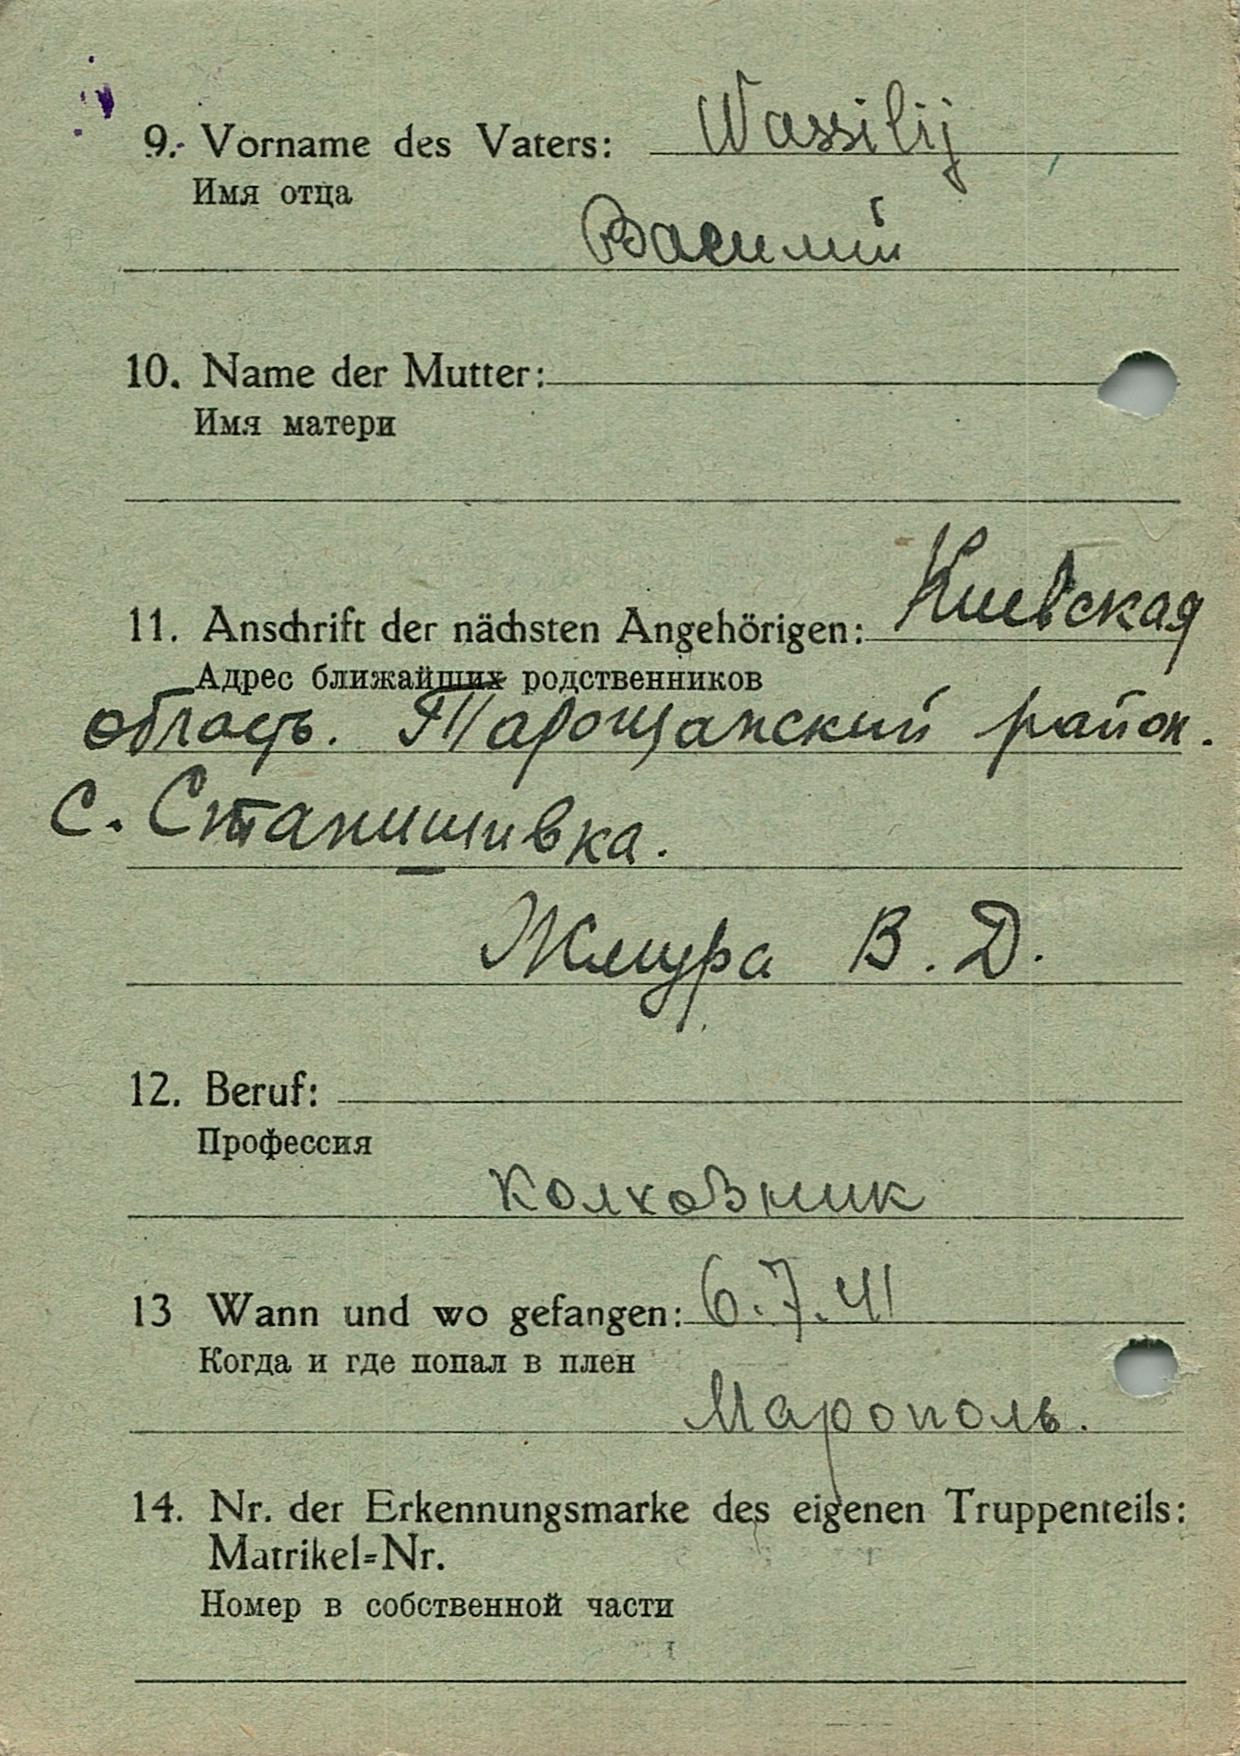 9. Vorname des Vaters: Wassilij
Имя отца
Василий
10. Name der Mutter:
Имя матери
11. Anschrift der nächsten Angehörigen: Киевская
Адрес ближайших родственников
область. Таращанский район.
с. Станишивка.
Жмура В. Д.
12. Beruf:
Профессия
Колхозник
13 Wann und wo gefangen: 6.7.41
Когда и где попал в плен
Марополь.
14. Nr. der Erkennungsmarke des eigenen Truppenteils:
Matrikel=Nr.
Номер в собственной части